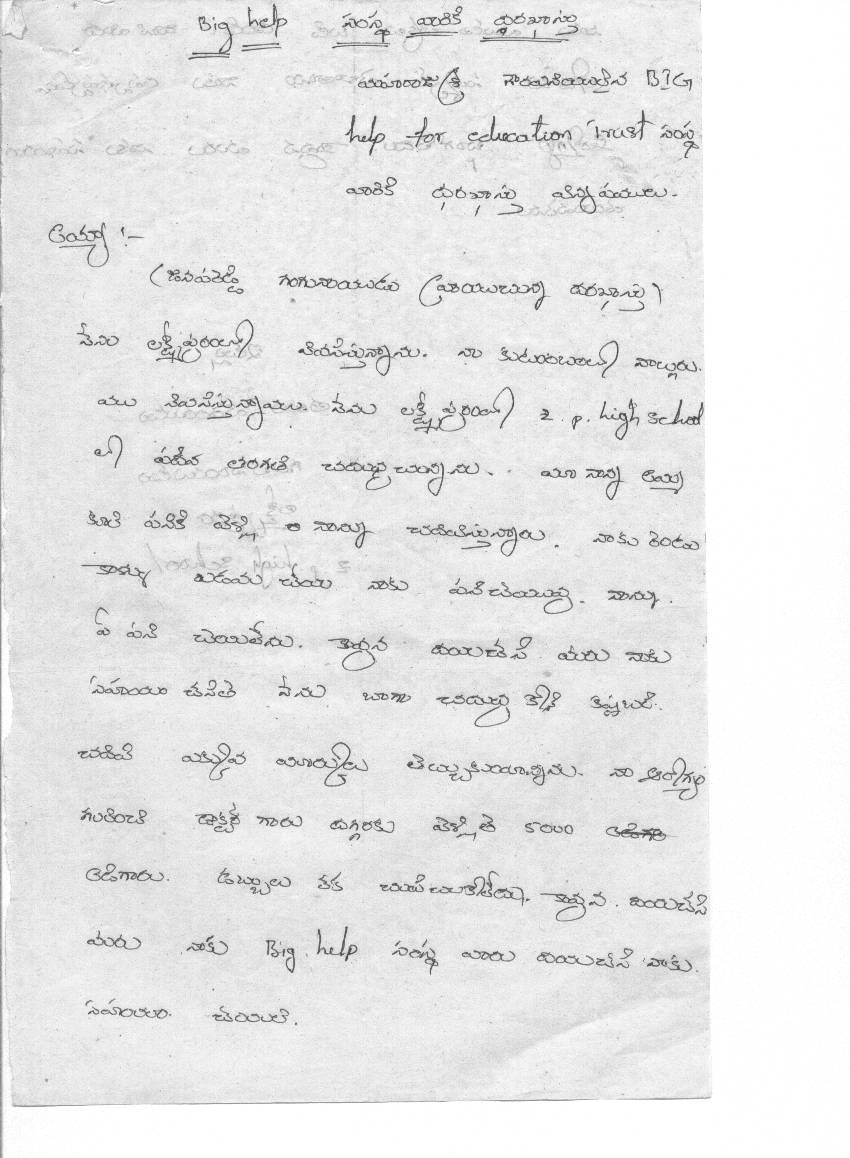 Big help సంస్థ వారికి ధరఖాస్తు
మహారాజశ్రీ గౌరవనియులైన BIG
help for education Trust సంస్థ
వారికి ధరఖాస్తు విన్నపములు.
అయ్యా :-
గంగునాయుడు వ్రాయుచున్న దరఖాస్తు)
నేను లక్ష్మీపురంలో నివసిస్తున్నాను. నా కుటుంబంలో నాల్గురు.
ము నివసిస్తున్నాము. నేను లక్ష్మీపురంలో Z. p. high school
లో పదవ తరగతి చదువుచున్నాను. మా నాన్న అమ్మ
కూలి పనికి వెళ్ళి నాన్ను చదివిస్తున్నారు. నాకు రెండు
కాళ్ళు నాకు పనిచేయువు. నాన్ను.
ఏ పని చెయలేను. కావున దయచేసి మరు నాకు
సహాయం చేసితే నేను బాగా చదువు కోని కష్టబడి.
చదివి ఎక్కువ మార్కులు తెచ్చుకుంటాన్ను. నా ఆరోగ్యం
గురించి డాక్టర్ గారు దగ్గరకు వెళ్ళితే 5000
అడిగారు. డబ్బులు లేక చుపించుకోలేదు. కావున. దయచేసి
మరు నాకు Big help సంస్థ వారు దయచేసి నాకు.
సహాయం. చేయండి.